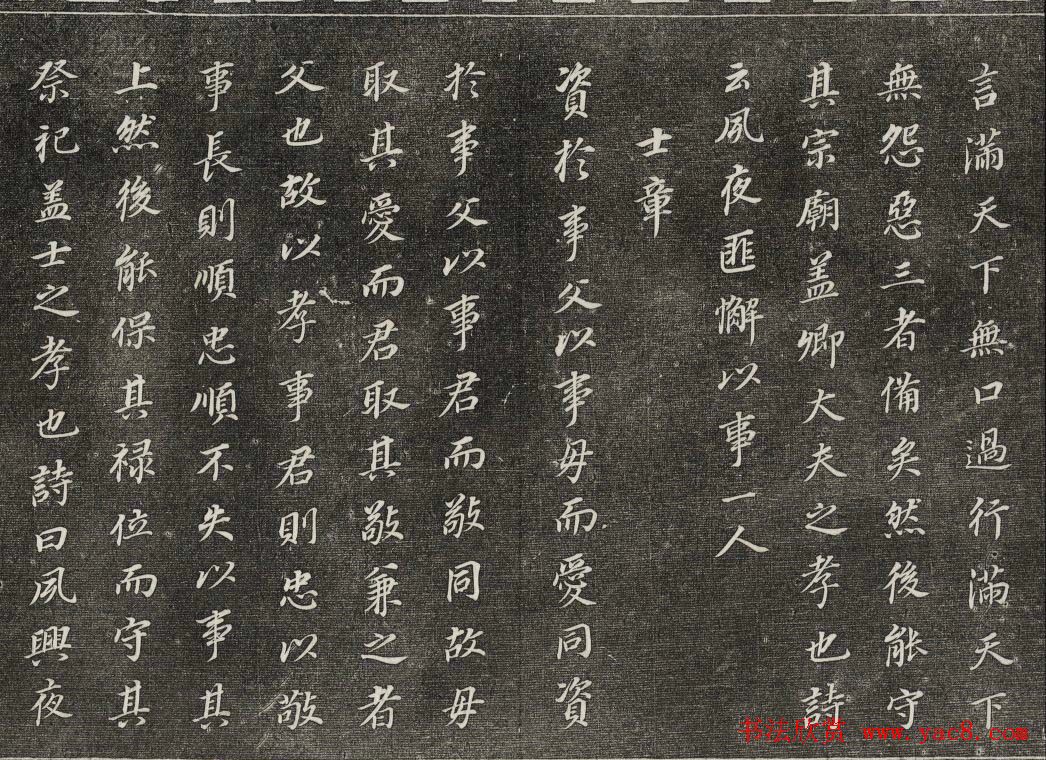 言滿天下無口過行滿天下
無怨惡三者備矣然後能守
其宗廟盖卿大夫之孝也詩
云夙夜匪懈以事一人
士章
資於事父以事母而愛同資
於事父以事君而敬同故母
取其愛而君取其敬兼之者
父也故以孝事君則忠以敬
事長則順忠順不失以事其
上然後能保其禄位而守其
祭祀盖士之孝也詩曰夙興夜
书法欣赏 www.yac8.com